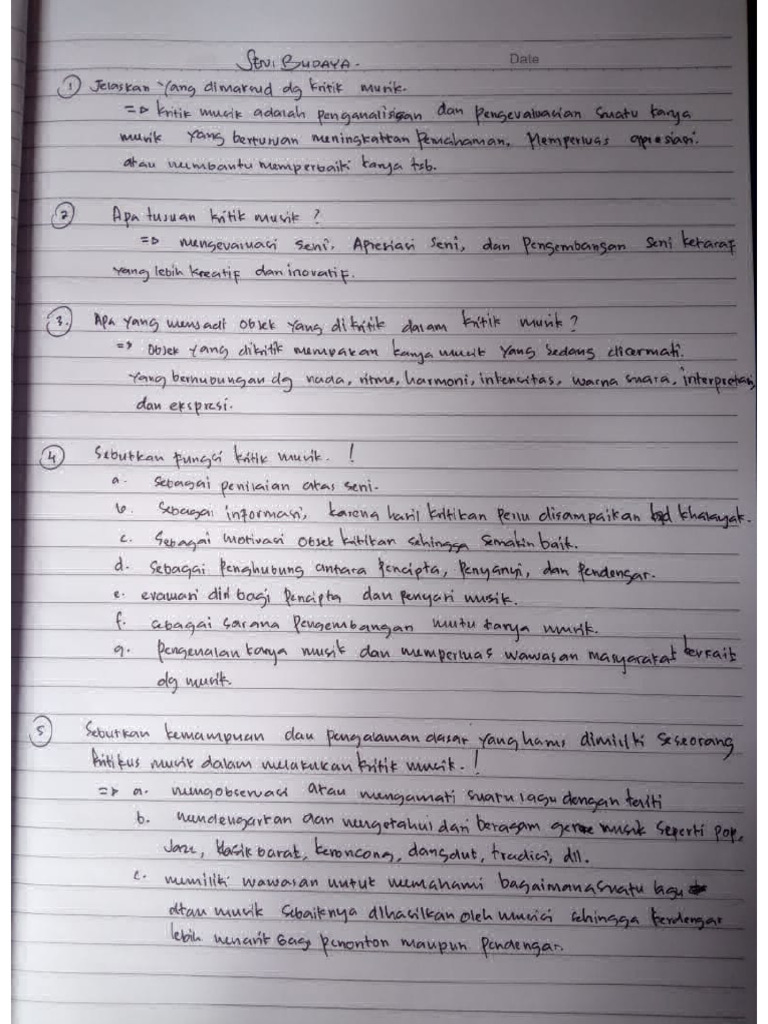 SENI BUDAYA.
Date
① Jelaskan yang dimaksud dg kritik musik.
=> kritik musik adalah penganalisisan dan pengevaluasian suatu karya
musik yang bertujuan meningkatkan pemahaman, memperluas apresiasi.
atau membantu memperbaiki karya tsb.
② Apa tujuan kritik musik ?
=> mengevaluasi seni, Apresiasi seni, dan Pengembangan seni ketaraf
yang lebih kreatif dan inovatif.
③. Apa yang menjadi objek yang dikritik dalam kritik musik ?
=> objek yang dikritik merupakan karya musik yang sedang dicermati.
yang berhubungan dg nada, ritme, harmoni, intensitas, warna suara, interpretasi,
dan ekspresi.
④ Sebutkan fungsi kritik musik. !
a. sebagai penilaian atas seni.
b. Sebagai informasi, karena hasil kritikan perlu disampaikan kpd khalayak.
c. Sebagai motivasi objek kritikan sehingga semakin baik.
d. sebagai penghubung antara pencipta, penyanyi, dan pendengar.
e. evaluasi diri bagi pencipta dan penyaji musik.
f. sebagai sarana pengembangan mutu karya musik.
g. pengenalan karya musik dan memperluas wawasan masyarakat terkait
dg musik.
⑤ Sebutkan kemampuan dan pengalaman dasar yang harus dimiliki seseorang
kritikus musik dalam melakukan kritik musik. !
=> a. mengobservasi atau mengamati suatu lagu dengan teliti
b. mendengarkan dan mengetahui dari beragam genre musik seperti pop,
Jazz, klasik barat, keroncong, dangdut, tradisi, dll.
c. memiliki wawasan untuk memahami bagaimana suatu lagu
atau musik sebaiknya dihasilkan oleh musisi sehingga terdengar
lebih menarik bagi penonton maupun pendengar.